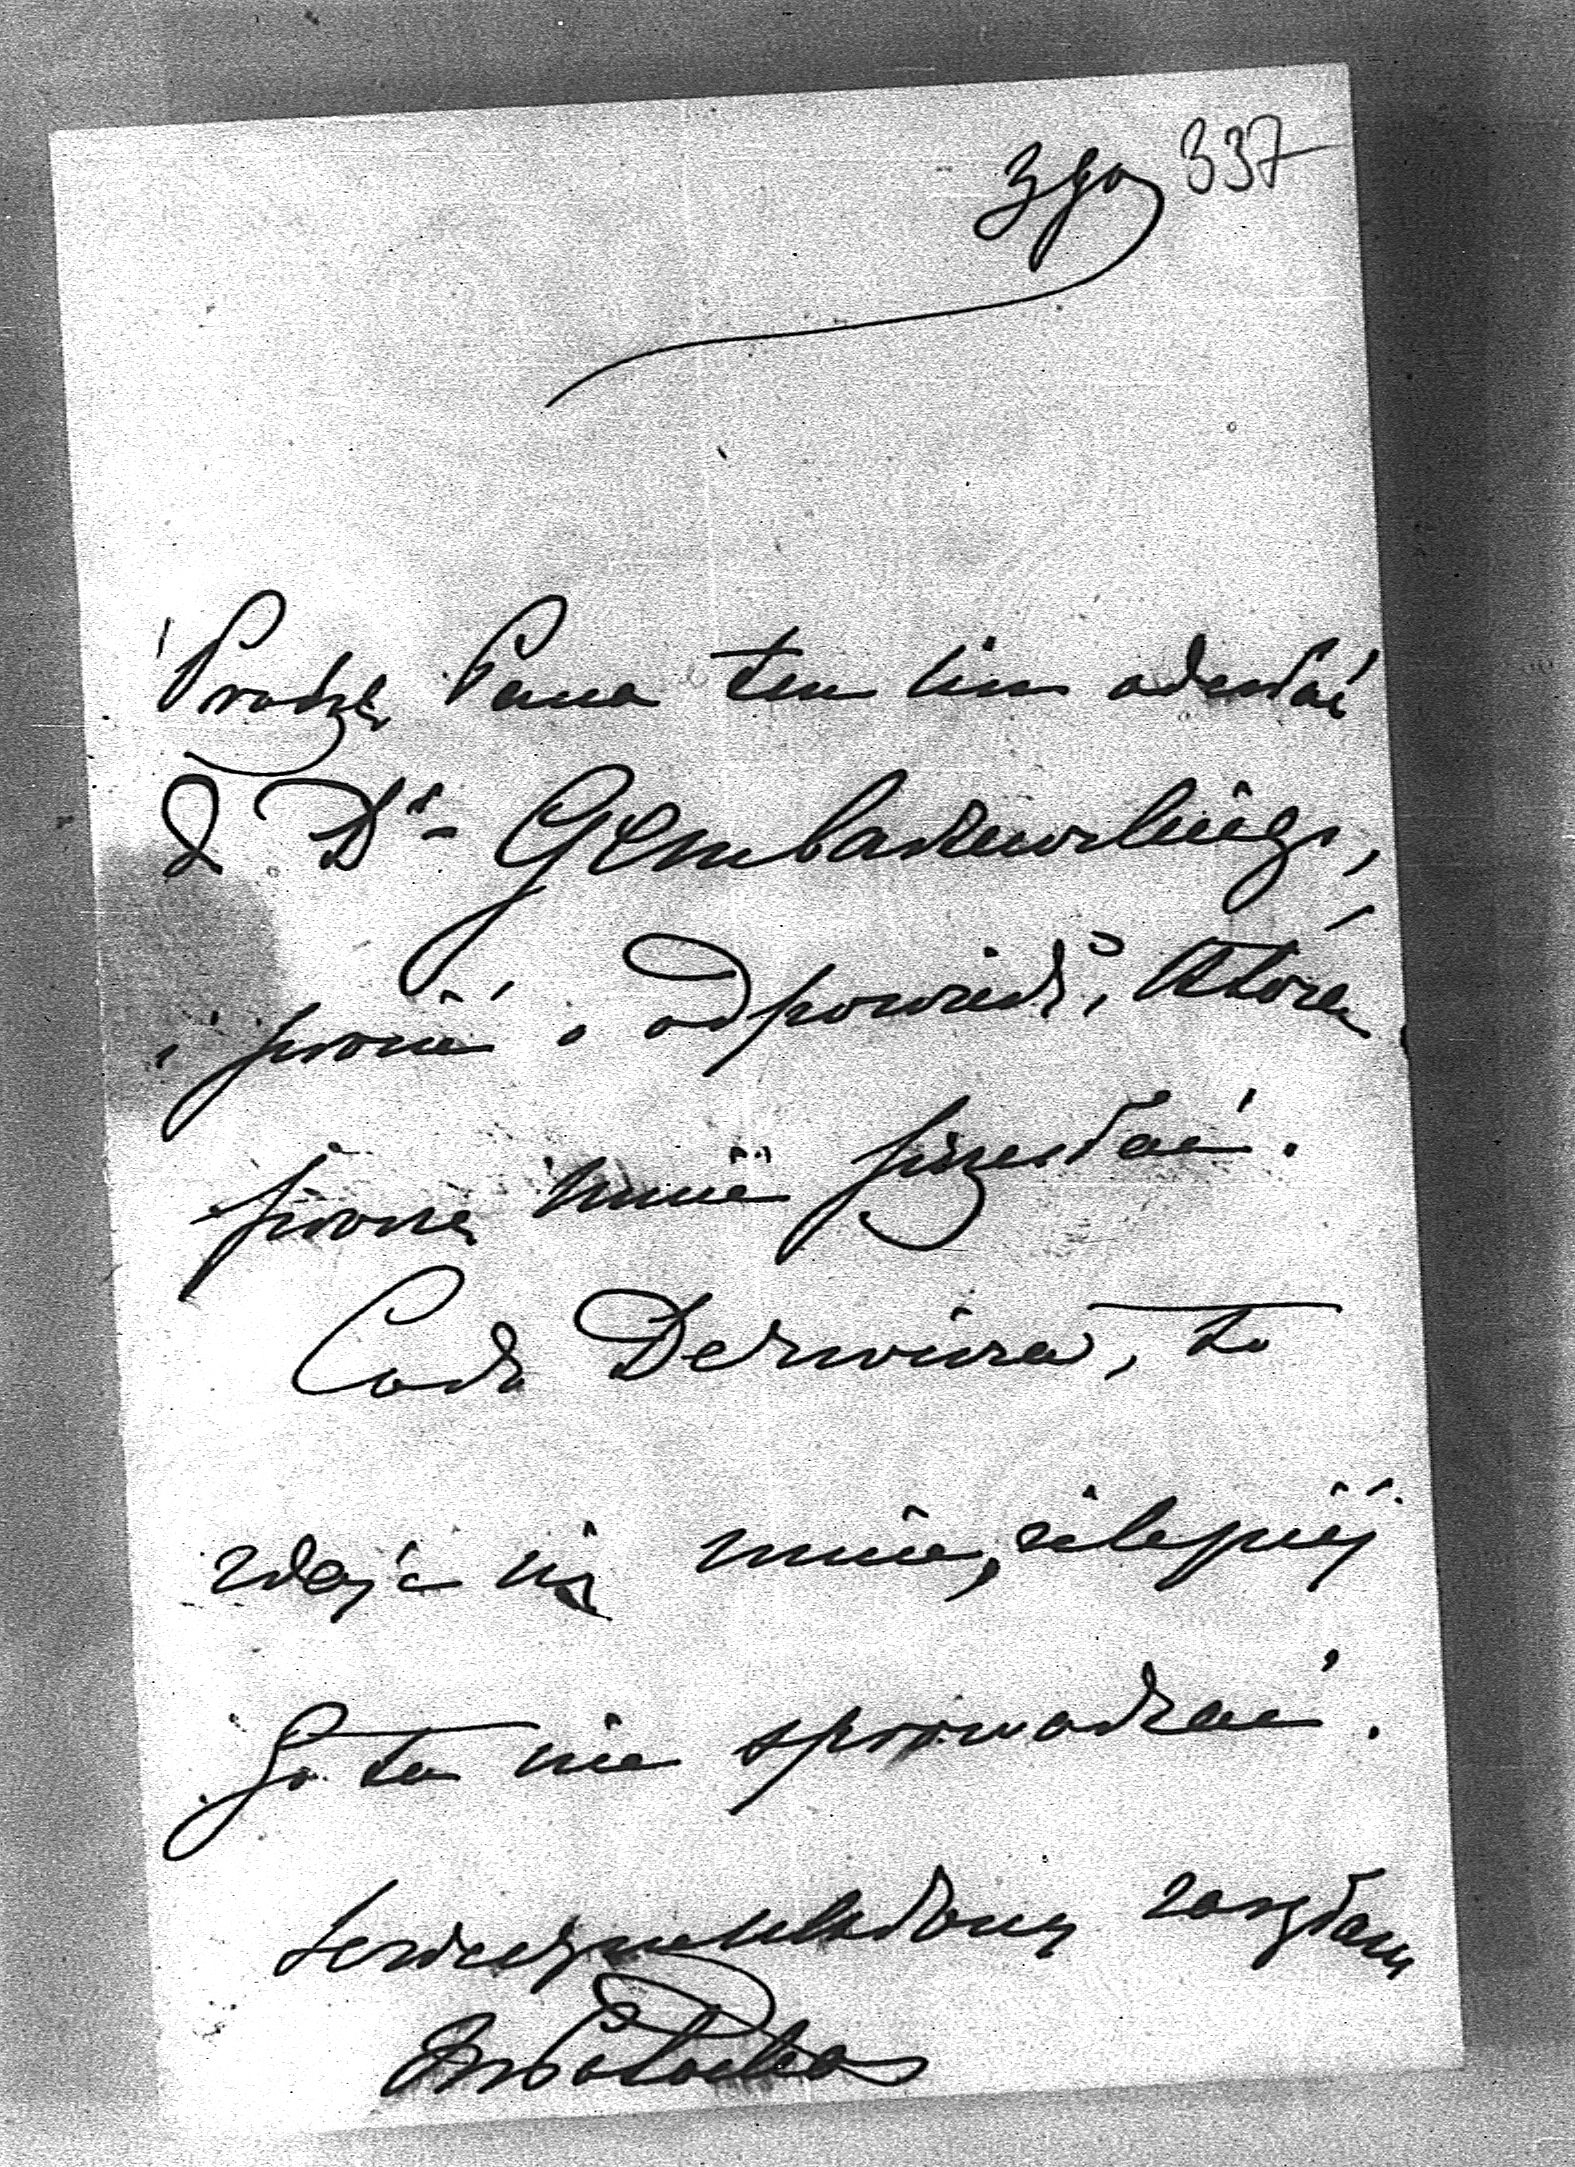 3go 337
Proszę Pana ten list odesłać
d Dra Gembarzewskiego,
i prosić o odpowiedź, którą
proszę mnie przesłać.
Co do Derwisza, to
zdaje się mnie, że lepiej
go tu nie sprowadzać.
Serdeczne ukłony zasyłam
Potocka